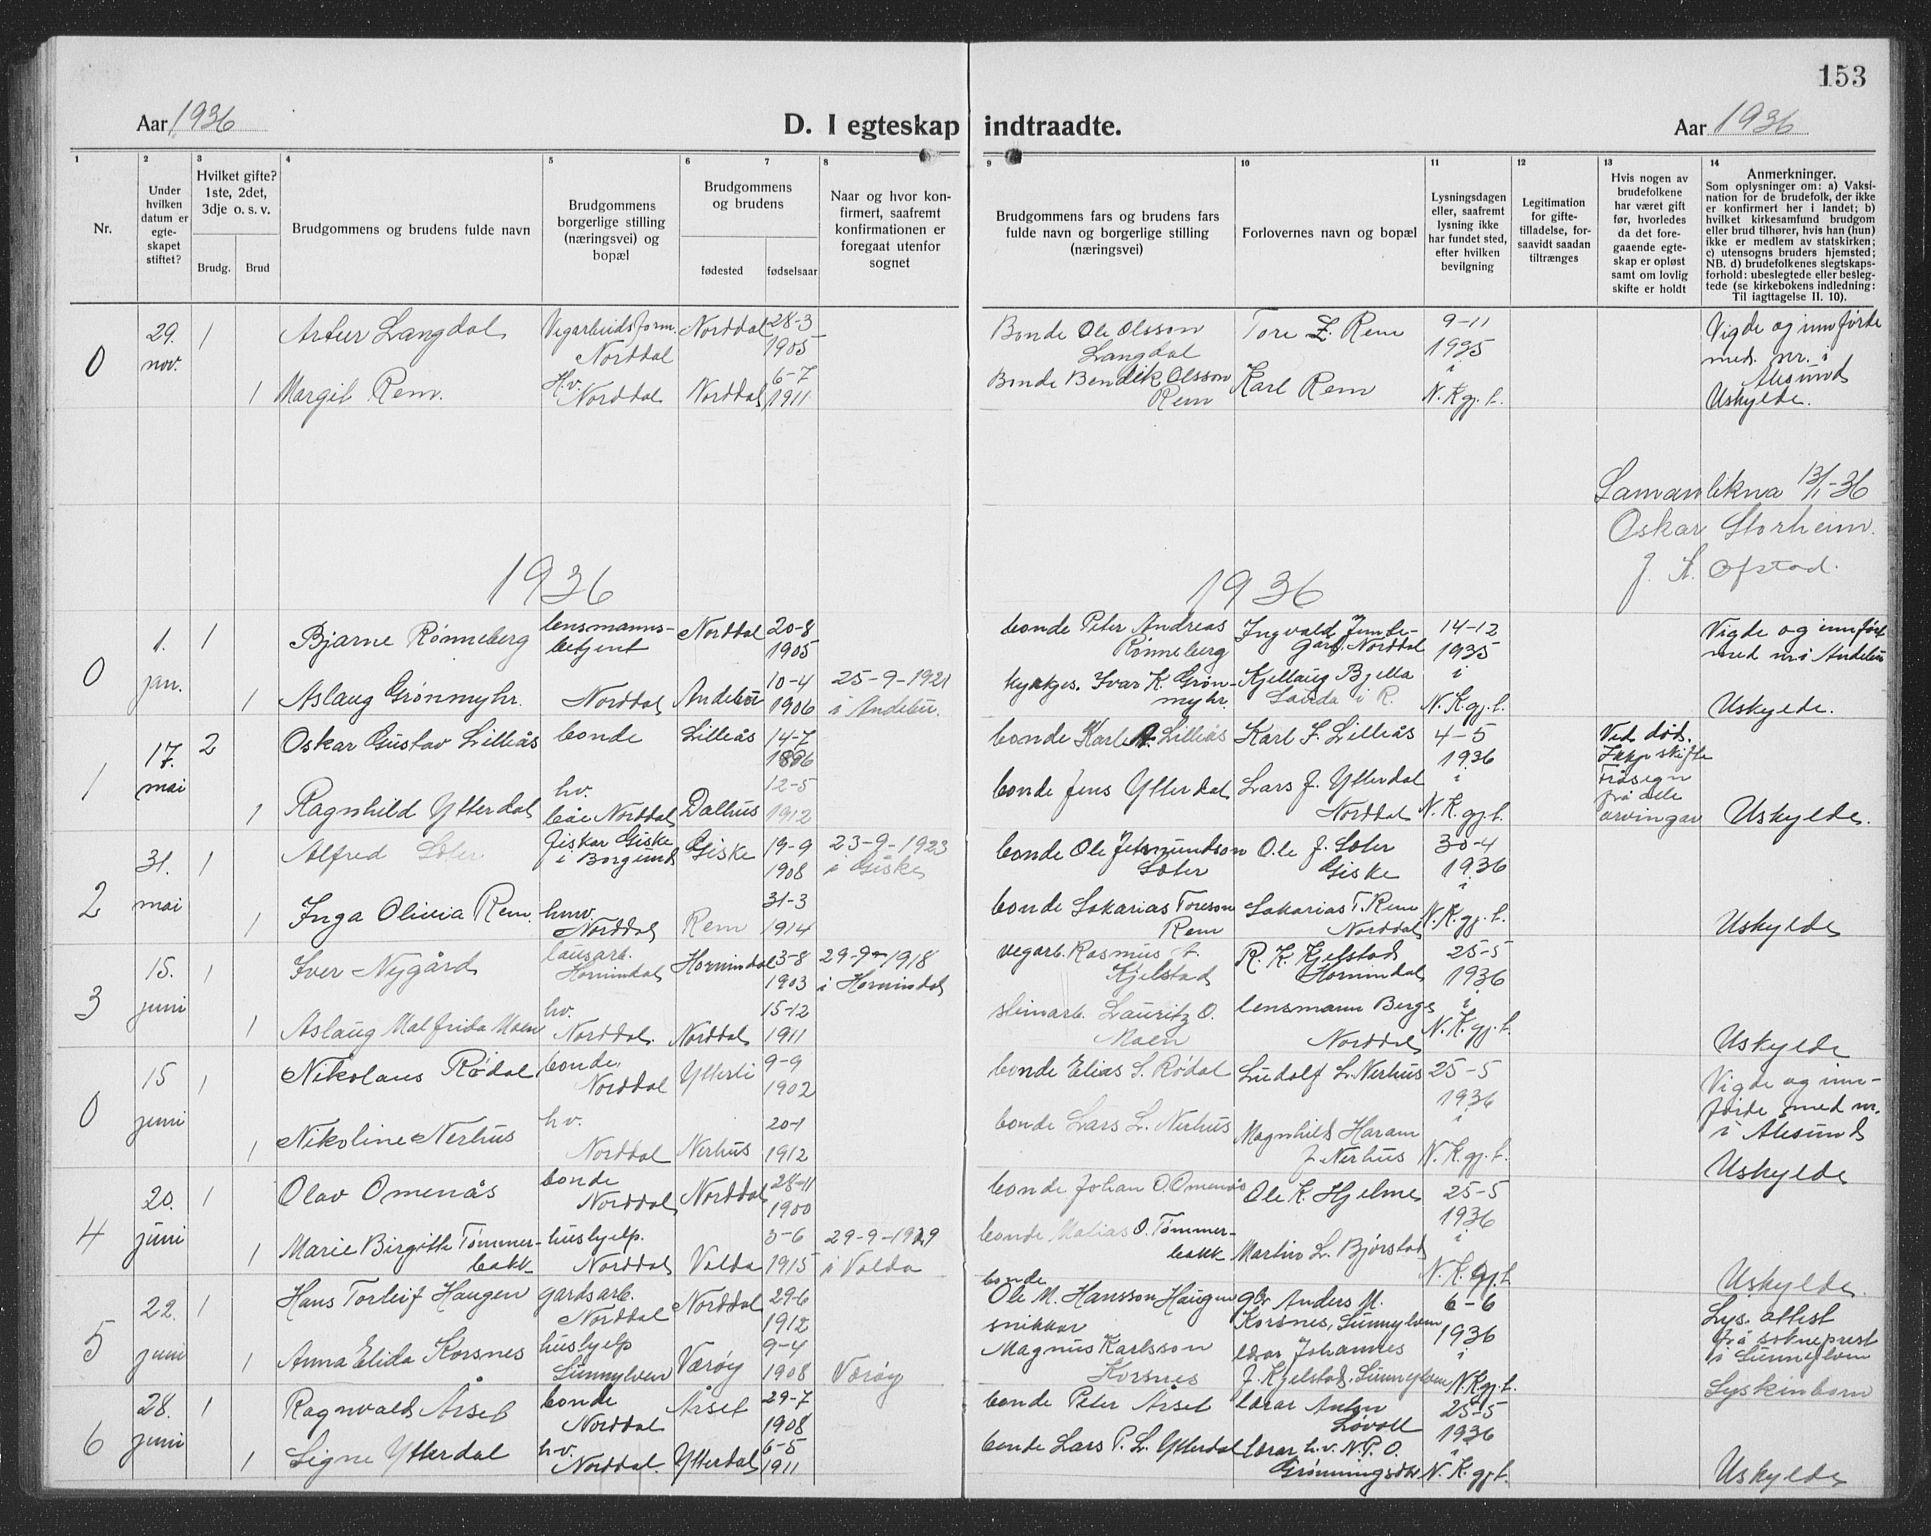 153
Aar 1936
D. I egteskap indtraadte.
Aar 1936
1
2
3
4
5
6
7
8
9
10
11
12
13
14
Nr.
Under
hvilken
datum er
egte-
skapet
stiftet?
Hvilket gifte?
1ste, 2det,
3dje o. s. v.
Brudg.
Brud
Brudgommens og brudens fulde navn
Brudgommens
borgerlige stilling
(næringsvei) og
bopæl
Brudgommens
og brudens
fødested
fødselsaar
Naar og hvor kon-
firmert, saafremt
konfirmationen er
foregaat utenfor
sognet
Brudgommens fars og brudens fars
fulde navn og borgerlige stilling
(næringsvei)
Forlovernes navn og bopæl
Lysningsdagen
eller, saafremt
lysning ikke
har fundet sted,
efter hvilken
bevilgning
Legitimation
for gifte-
tilladelse, for-
saavidt saadan
tiltrænges
Hvis nogen av
brudefolkene
har været gift
før, hvorledes
da det fore-
gaaende egte-
skap er opløst
samt om lovlig
skifte er holdt
Anmerkninger.
Som oplysninger om: a) Vaksi-
nation for de brudefolk, der ikke
er konfirmert her i landet; b)
hvilket kirkesamfund brudgom
eller brud tilhører, hvis han (hun)
ikke er medlem av statskirken;
c) utensogns bruders hjemsted;
NB. d) brudefolkenes slegtskaps-
forhold: ubeslegtede eller besleg-
tede (se kirkebokens indledning:
Til iagttagelse II. 10).
0
29.
nov.
1
Artur Langdal
Vegarbeidsform.
Norddal
Norddal
28-3
1905
Bonde Ole Olsson
Langdal
Tore Z. Rem
9-11
1935
i
N. K. gj. l.
Vigde og innførde
med nr. i
Ålesund
Uskylde.
1
Margit Rem.
H.v.
Norddal
Norddal
6-7
1911
Bonde Bendik Olsson
Rem
Karl Rem
Samanlikna 13/1-36
Oskar Storheim.
J. A. Ofstad.
1936
1936
0
1.
jan.
1
Bjarne Rønneberg
lensmanns-
betjent
Norddal
20-8
1905
bonde Peter Andreas
Rønneberg
Ingvald Jembe-
Norddal
14-12
1935
i
N. K. gj. l.
Vigde og innført
med nr i Andebu
Uskylde.
1
Aslaug Grønmyhr.
Norddal
Andebu
10-4
1906
25-9-1921
i Andebu.
Ivar K. Grøn-
myhr.
Kjellaug Bjella
Sauda i R.
1
17.
mai
2
Oskar Gustav Lilleås
bonde
Lilleås
14-7
1896
bonde Karl A. Lilleås
Karl F. Lilleås
4-5
1936
i
N. K. gj. l.
Ved død.
Ikkje skifte
Fråsegn
frå alle
arvingar
Uskylde.
1
Ragnhild Ytterdal
hv.
båe Norddal
Dalhus
12-5
1912
bonde Jens Ytterdal
Lars J. Ytterdal
Norddal
2
31.
mai
1
Alfred
fiskar Giske
i Borgund
Giske
19-9
1908
23-9-1923
i Giske
bonde Ole Jetmundson
Ole J.
Giske
30-4
1936
i
N. K. gj. l.
Uskylde
1
Inga Olivia Rem.
hmv.
Norddal
Rem
31-3
1914
bonde Sakarias Toreson
Rem
Sakarias T. Rem
Norddal
3
15.
juni
1
Iver Nygård
lausarb.
Hornindal
Hornindal
3-8
1903
29-9-1918
i Hornindal
vegarb. Rasmus
Kjelstad
R. K. Kjelstad
Hornindal
25-5
1936
i
N. K. gj. l.
Uskylde
1
Aslaug Malfrida Moen
hv.
Norddal.
Norddal
15-12
1911
steinarb. Lauritz O.
Moen
lensmann Berge
Norddal
0
15
juni
1
Nikolaus Rødal
bonde
Norddal
Ytterli
9-9
1902
bonde Elias S. Rødal
Ludolf L. Nerhus
25-5
1936
i
N. K. gj. l.
Vigde og inn-
førde med nr.
i Ålesund
Uskylde
1
Nikoline Nerhus
hv.
Norddal
Nerhus
20-1
1912
bonde Lars L. Nerhus
Magnhild Haram
f. Nerhus
4
20.
juni
1
Olav Omenås
bonde
Norddal
Norddal
28-11
1900
bonde Johan O. Omenås
Ole K. Hjelme
25-5
1936
i
N. K. gj. l.
Uskylde.
1
Marie Birgitte Tømmer-
bakk
hushjelp.
Norddal
Volda
3-6
1915
29-9-1929
i Volda
bonde Matias O. Tømmer-
bakk
Martin L. Bjørstad
5
22.
juni
1
Hans Torleif Haugen
gardsarb.
Norddal
Norddal
29-6
1912
bonde
Ole M. Hansson Haugen
gbr Anders M.
Korsnes, Sunnylven
6-6
1936
i
N. K. gj. l.
Lys. attest
frå sokneprest
i Sunnylven
Syskinborn
1
Anna Elida Korsnes
hushjelp
Sunnylven
Værøy
9-4
1908
Værøy
snikkar
Magnus Karlsson
Korsnes
lærar Johannes
J. Kjelstad, Sunnylven
6
28.
juni
1
Ragnvald Årset
bonde
Norddal
Årset
29-7
1908
bonde Peter Årset
lærar Anton
Løvoll
25-5
1936
i
N. K. gj. l.
Uskylde
1
Signe Ytterdal
h.v.
Norddal.
Ytterdal
6-5
1911
bonde Lars P. L. Ytterdal
lærar h.v. N. P. O.
Grønningsæter